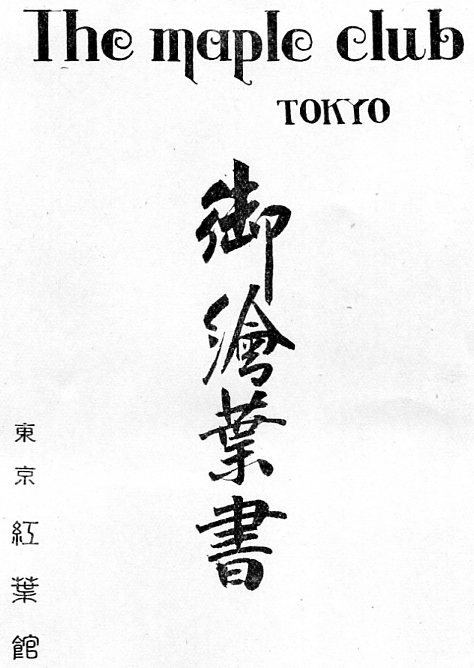 The maple club
TOKYO
御繪葉書
東京 紅葉館